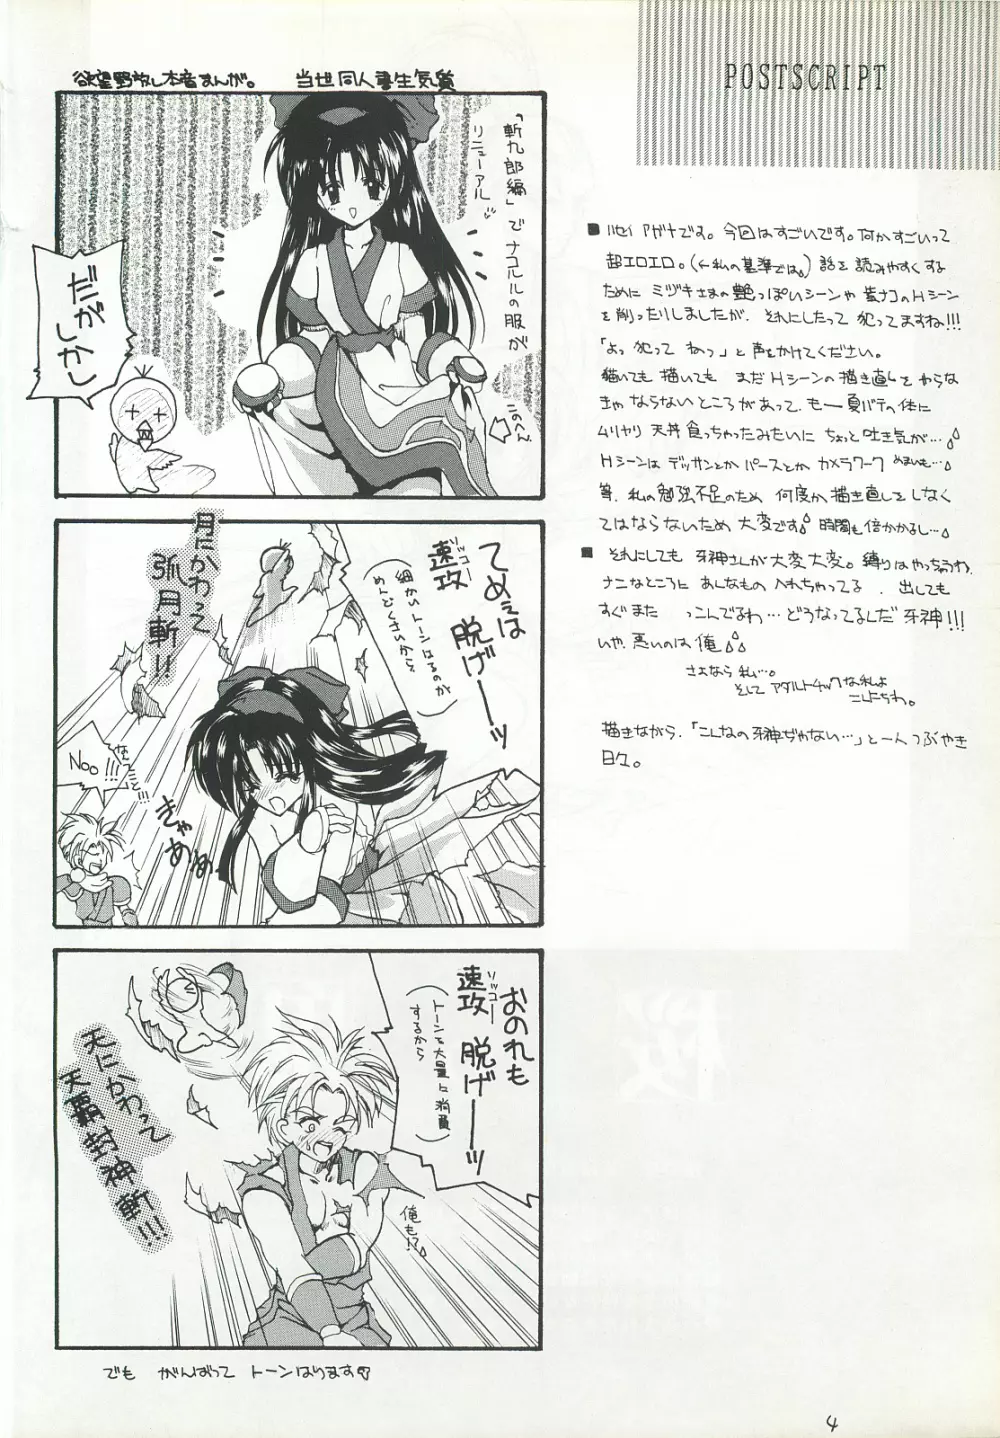 POSTSCRIPT
欲望野放し本音まんが。 当世同人書生気質
「斬九郎編」で ナコルルの服が
リニューアル
このへん
だが
しかし
てめぇは
速攻 脱げーーッ
ソッコー
(細かいトーンはるのが
めんどくさいから)
月にかわって
弧月斬!!
なんてこと!!!
Noo!!!
きゃあぁぁ
おのれも
速攻 脱げーーッ
ソッコー
(トーンを大量に消費
するから)
天にかわって
天覇封神斬!!!
俺も!?
でも がんばって トーンはります
■ アガナです。今回はすごいです。何がすごいって
超エロエロ。(←私の基準では) 話を読みやすくする
ために ミヅキさまの艶っぽいシーンや 紫ナコのHシーン
を削ったりしましたが、それにしたって 犯ってますね!!!
「よっ 犯って ねっ」と声をかけてください。
描いても 描いても まだHシーンの描き直しをやらな
きゃならないところがあって、もー夏バテの体に
ムリヤリ 天丼食っちゃったみたいに ちょっと吐き気が…
Hシーンは デッサンとか パースとか カメラワーク めまいも…
等、私の勉強不足のため 何度か描き直しをしなく
てはならないため 大変です 時間も倍かかるし…
■ それにしても 牙神さんが大変大変。縛りはやっちゃうわ、
ナニなところに あんなもの 入れちゃってる、出しても
すぐまた つっこんでるわ…どうなってるんだ 牙神!!!
いや、悪いのは 俺
さよなら 私…。
そして アダルトチックな私よ
こんにちわ。
描きながら、「こんなの牙神ぢゃない…」と一人つぶやき
日々。
4